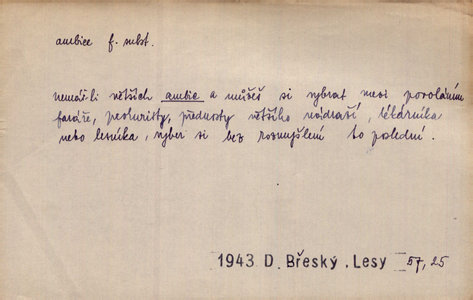 ambice f. subst.
nemáš-li větších ambic a můžeš si vybrat mezi povoláním
faráře, purkristy, přednosty většího nádraží, lékárníka
nebo lesníka, vyber si bez rozmyšlení to poslední.
1943 D. Břeský, Lesy 57, 25